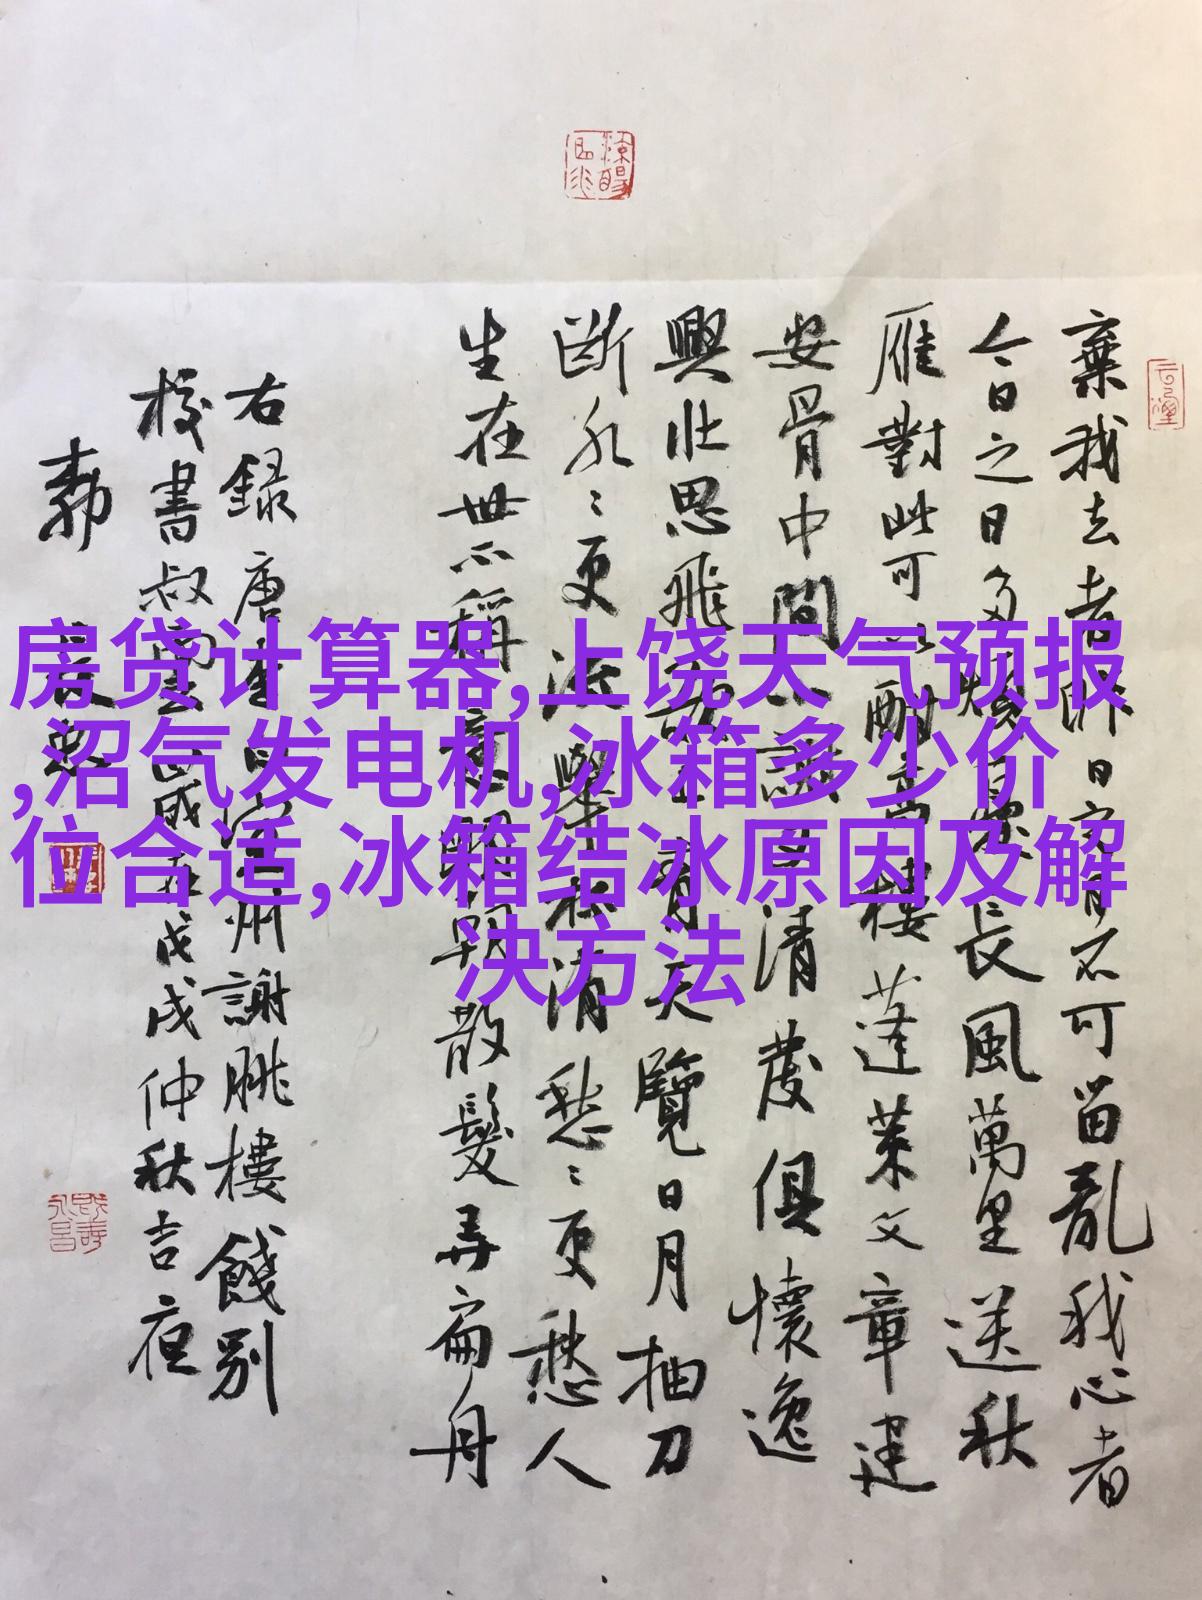 棄我去者昨日之日不可留亂我心者
今日之日多煩憂長風萬里送秋
雁對此可以酣高樓蓬萊文章建
安骨中間小謝又清發俱懷逸
興壯思飛欲上青天覽日月抽刀
斷水〻更流舉杯消愁〻更愁人
生在世不稱意明朝散髮弄扁舟
右録唐李白宣州謝朓樓餞別
校書叔雲歲在戊戌仲秋吉夜
房贷计算器,上饶天气预报
,沼气发电机,冰箱多少价
位合适,冰箱结冰原因及解
决方法